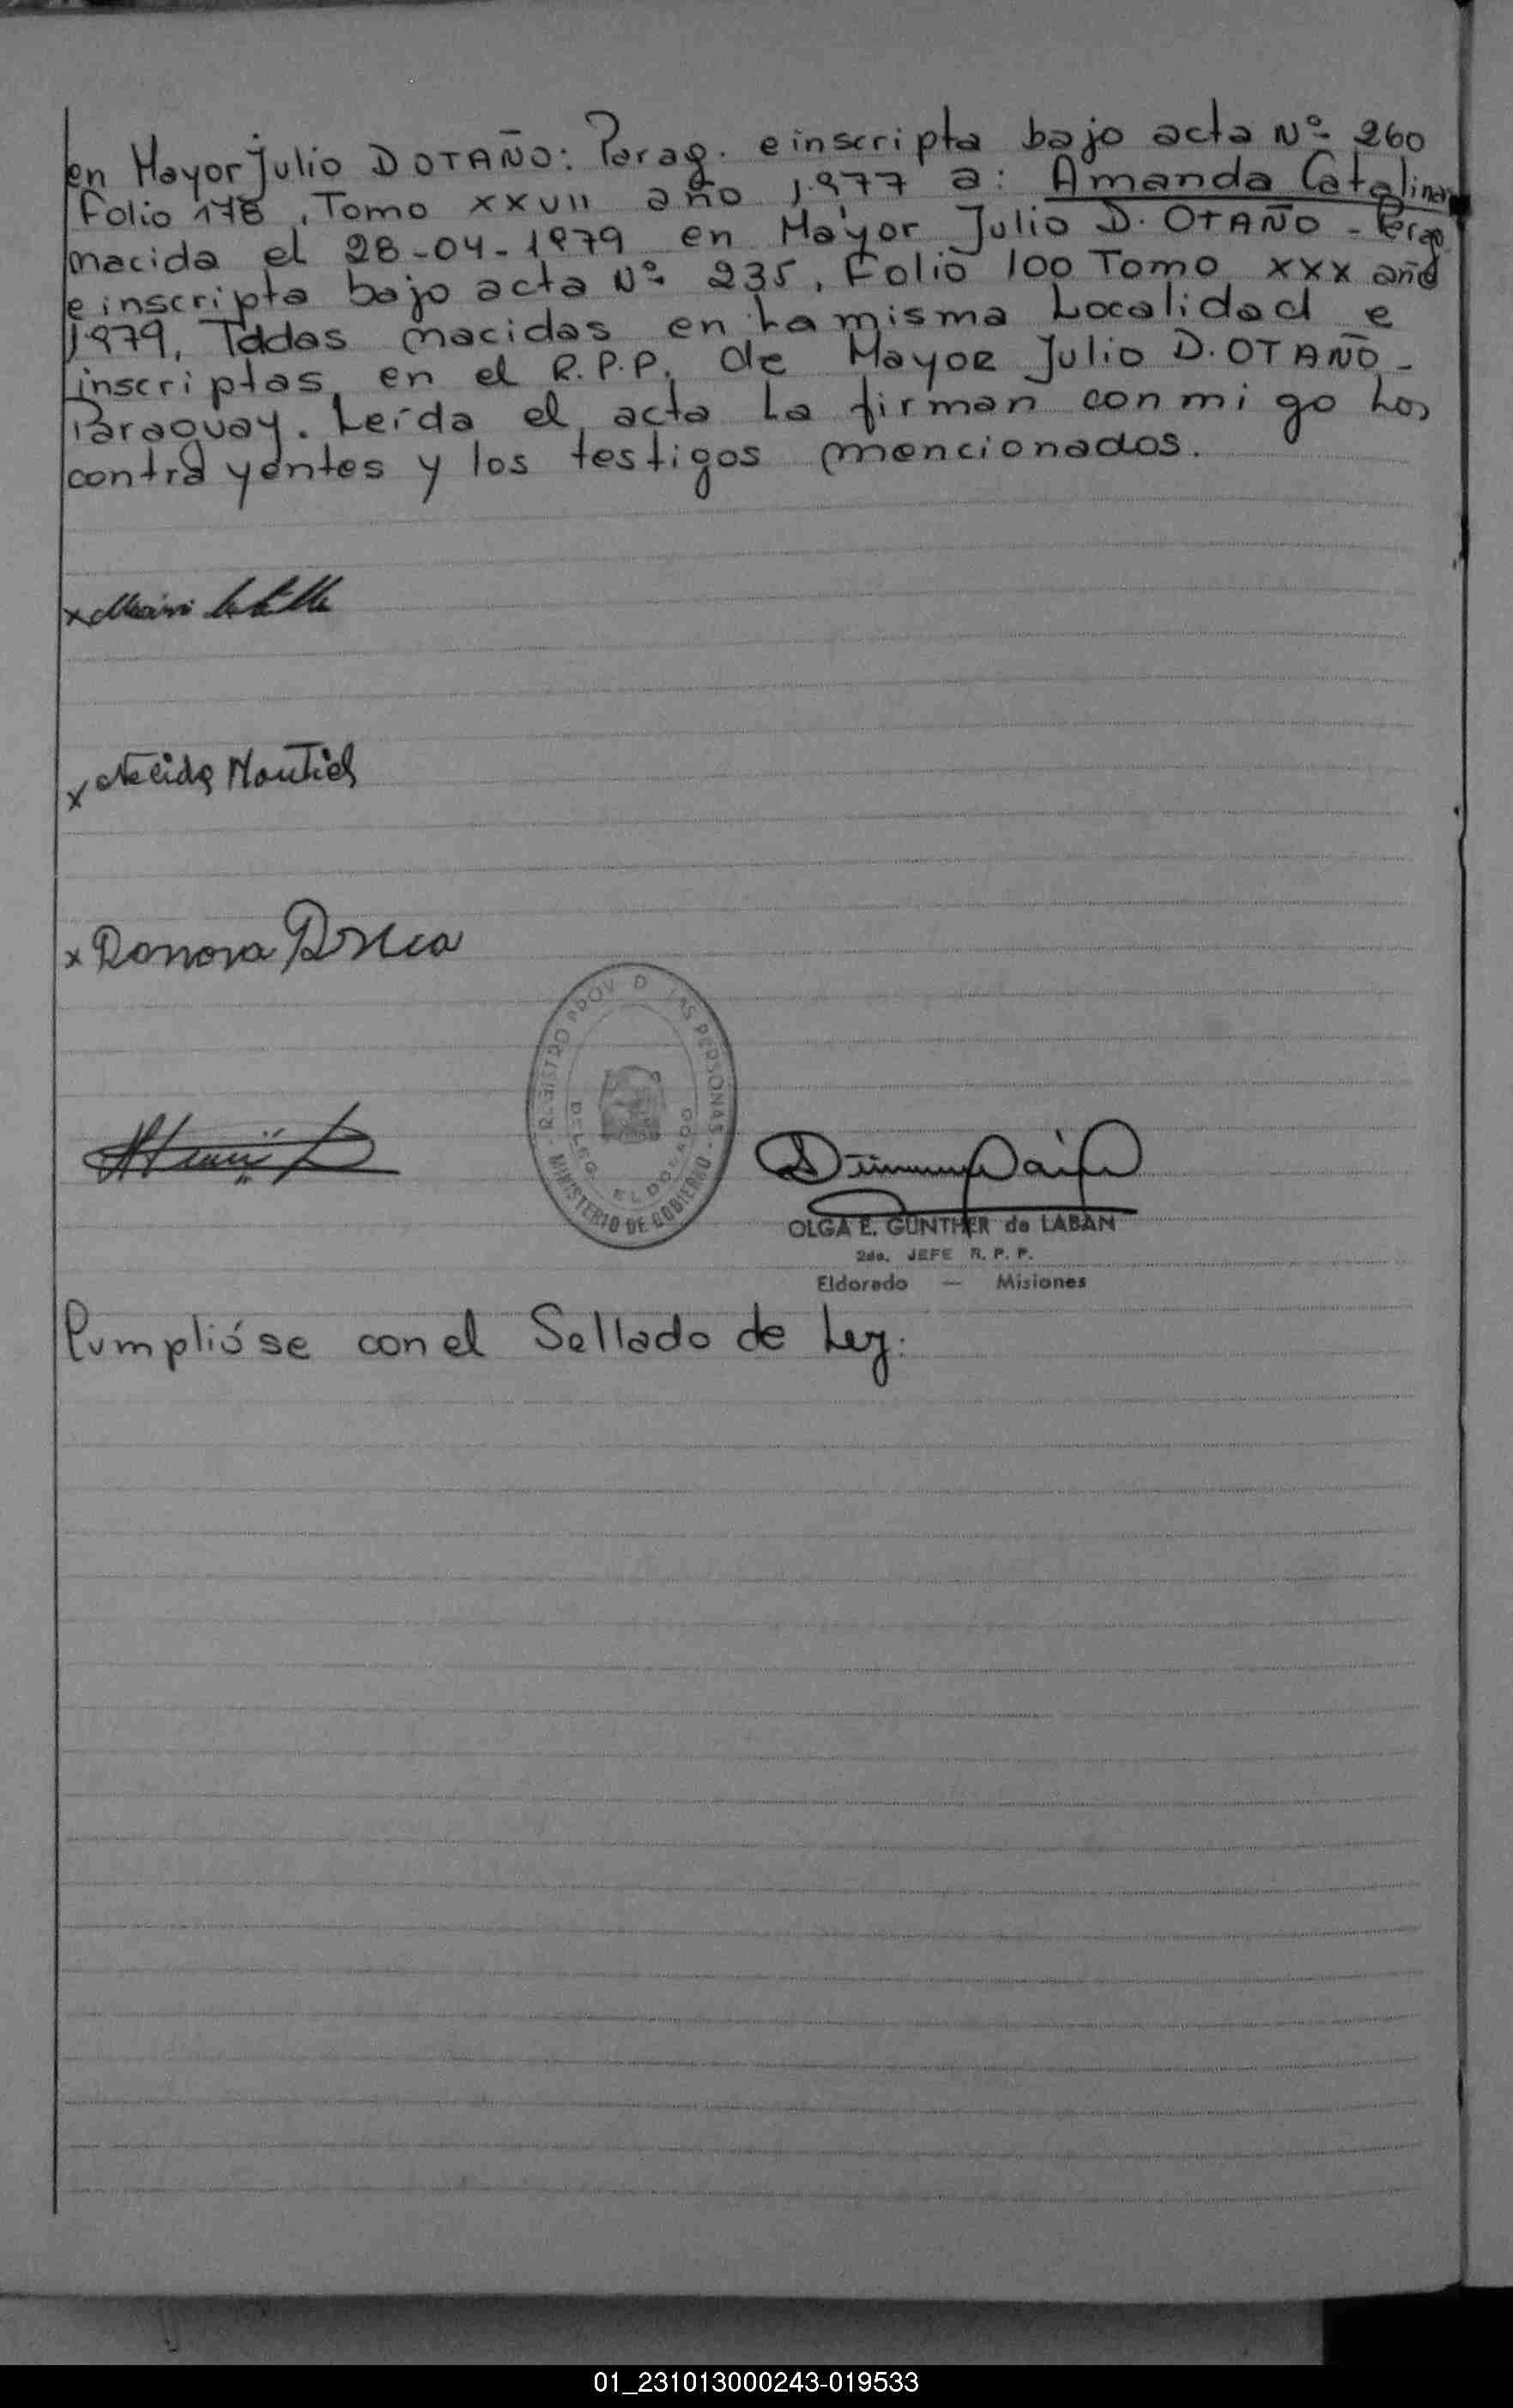 en Mayor Julio D OTAÑO: Parag. e inscripta bajo acta Nº 260
Folio 178, Tomo XXVII año 1.977 a: Amanda Catalina
nacida el 28-04-1979 en Mayor Julio D. OTAÑO - Parag
e inscripta bajo acta Nº 235, Folio 100 Tomo XXX año
1.979, Todas nacidas en la misma Localidad e
inscriptas en el R.P.P. de Mayor Julio D. OTAÑO -
Paraguay. Leída el acta la firman conmigo los
contrayentes y los testigos mencionados.
x
x Nelida Montiel
x Ramona
REGISTRO PROV D LAS PERSONAS
DELEG. ELDORADO
MINISTERIO DE GOBIERNO
OLGA E. GUNTHER de LABAN
2do. JEFE R. P. P.
Eldorado — Misiones
Cumplióse con el Sellado de Ley.
01_231013000243-019533